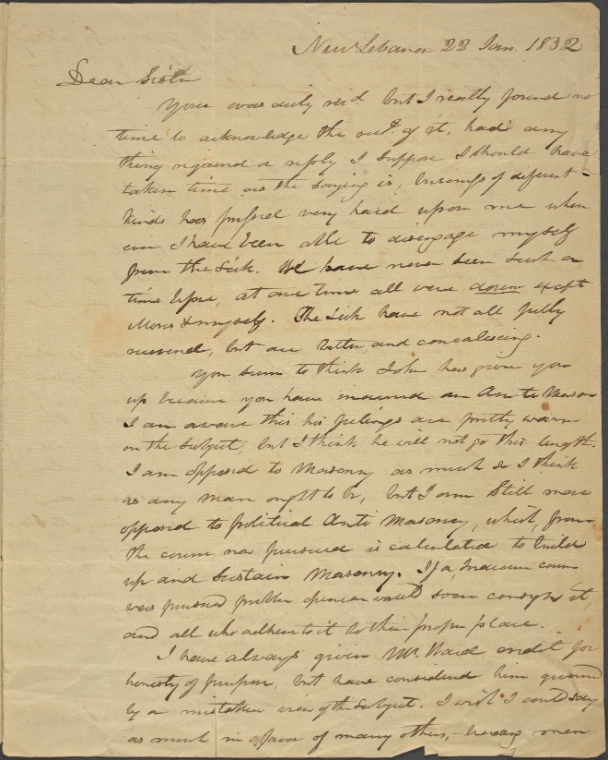 New Lebanon 22 Jan. 1832
Dear Sister
Your was duly recd. but I really found no
time to acknowledge the rect. of it, had any
thing required a reply I suppose I should have
taken time as the saying is, business of different
kinds has pressed very hard upon me when
ever I have been able to disengage myself
from the Sick. We have never been such a
time before, at one time all were down except
& myself. The Sick have not all fully
recovered, but are better and convalescing.
You seem to think John has given you
up because you have married an Anti Mason
I am aware that his feelings are pretty warm
on the subject, but I think he will not go this length.
I am opposed to Masonry as much as I think
as any man ought to be, but I am Still more
opposed to political Anti Masonry, which, from
the course now pursued is calculated to build
up and Sustain Masonry. If a course
was pursued public opinion would soon consign it,
and all who adhere to it to their proper place.
I have always given Mr. Ward credit for
honesty of purpose, but have considered him governed
by a mistaken view of the subject. I wish I could say
as much in favor of many others, – leading men